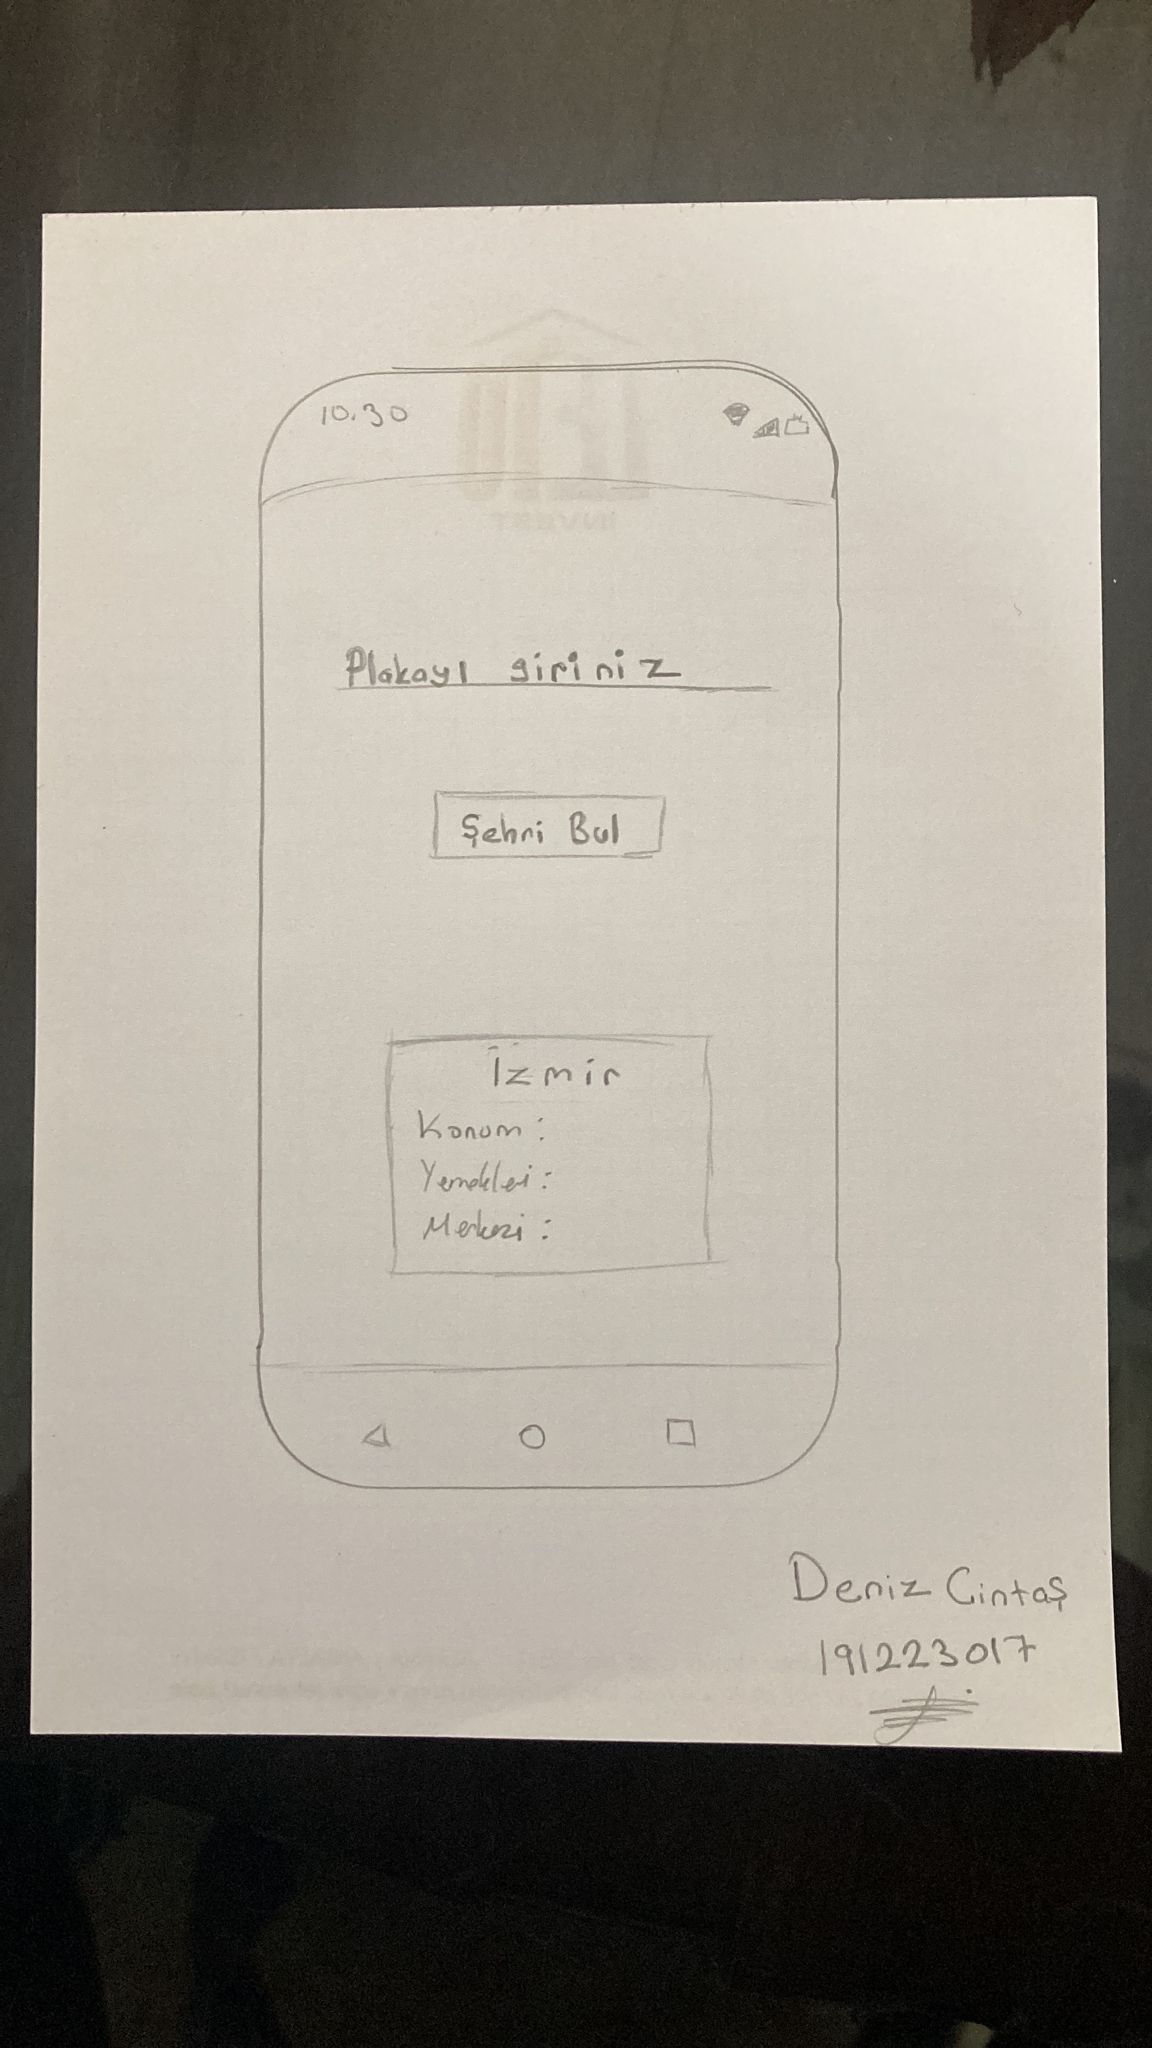 10.30
Plakayı giriniz
Şehri Bul
İzmir
Konum :
Yemekleri :
Merkezi :
Deniz Cintaş
191223017